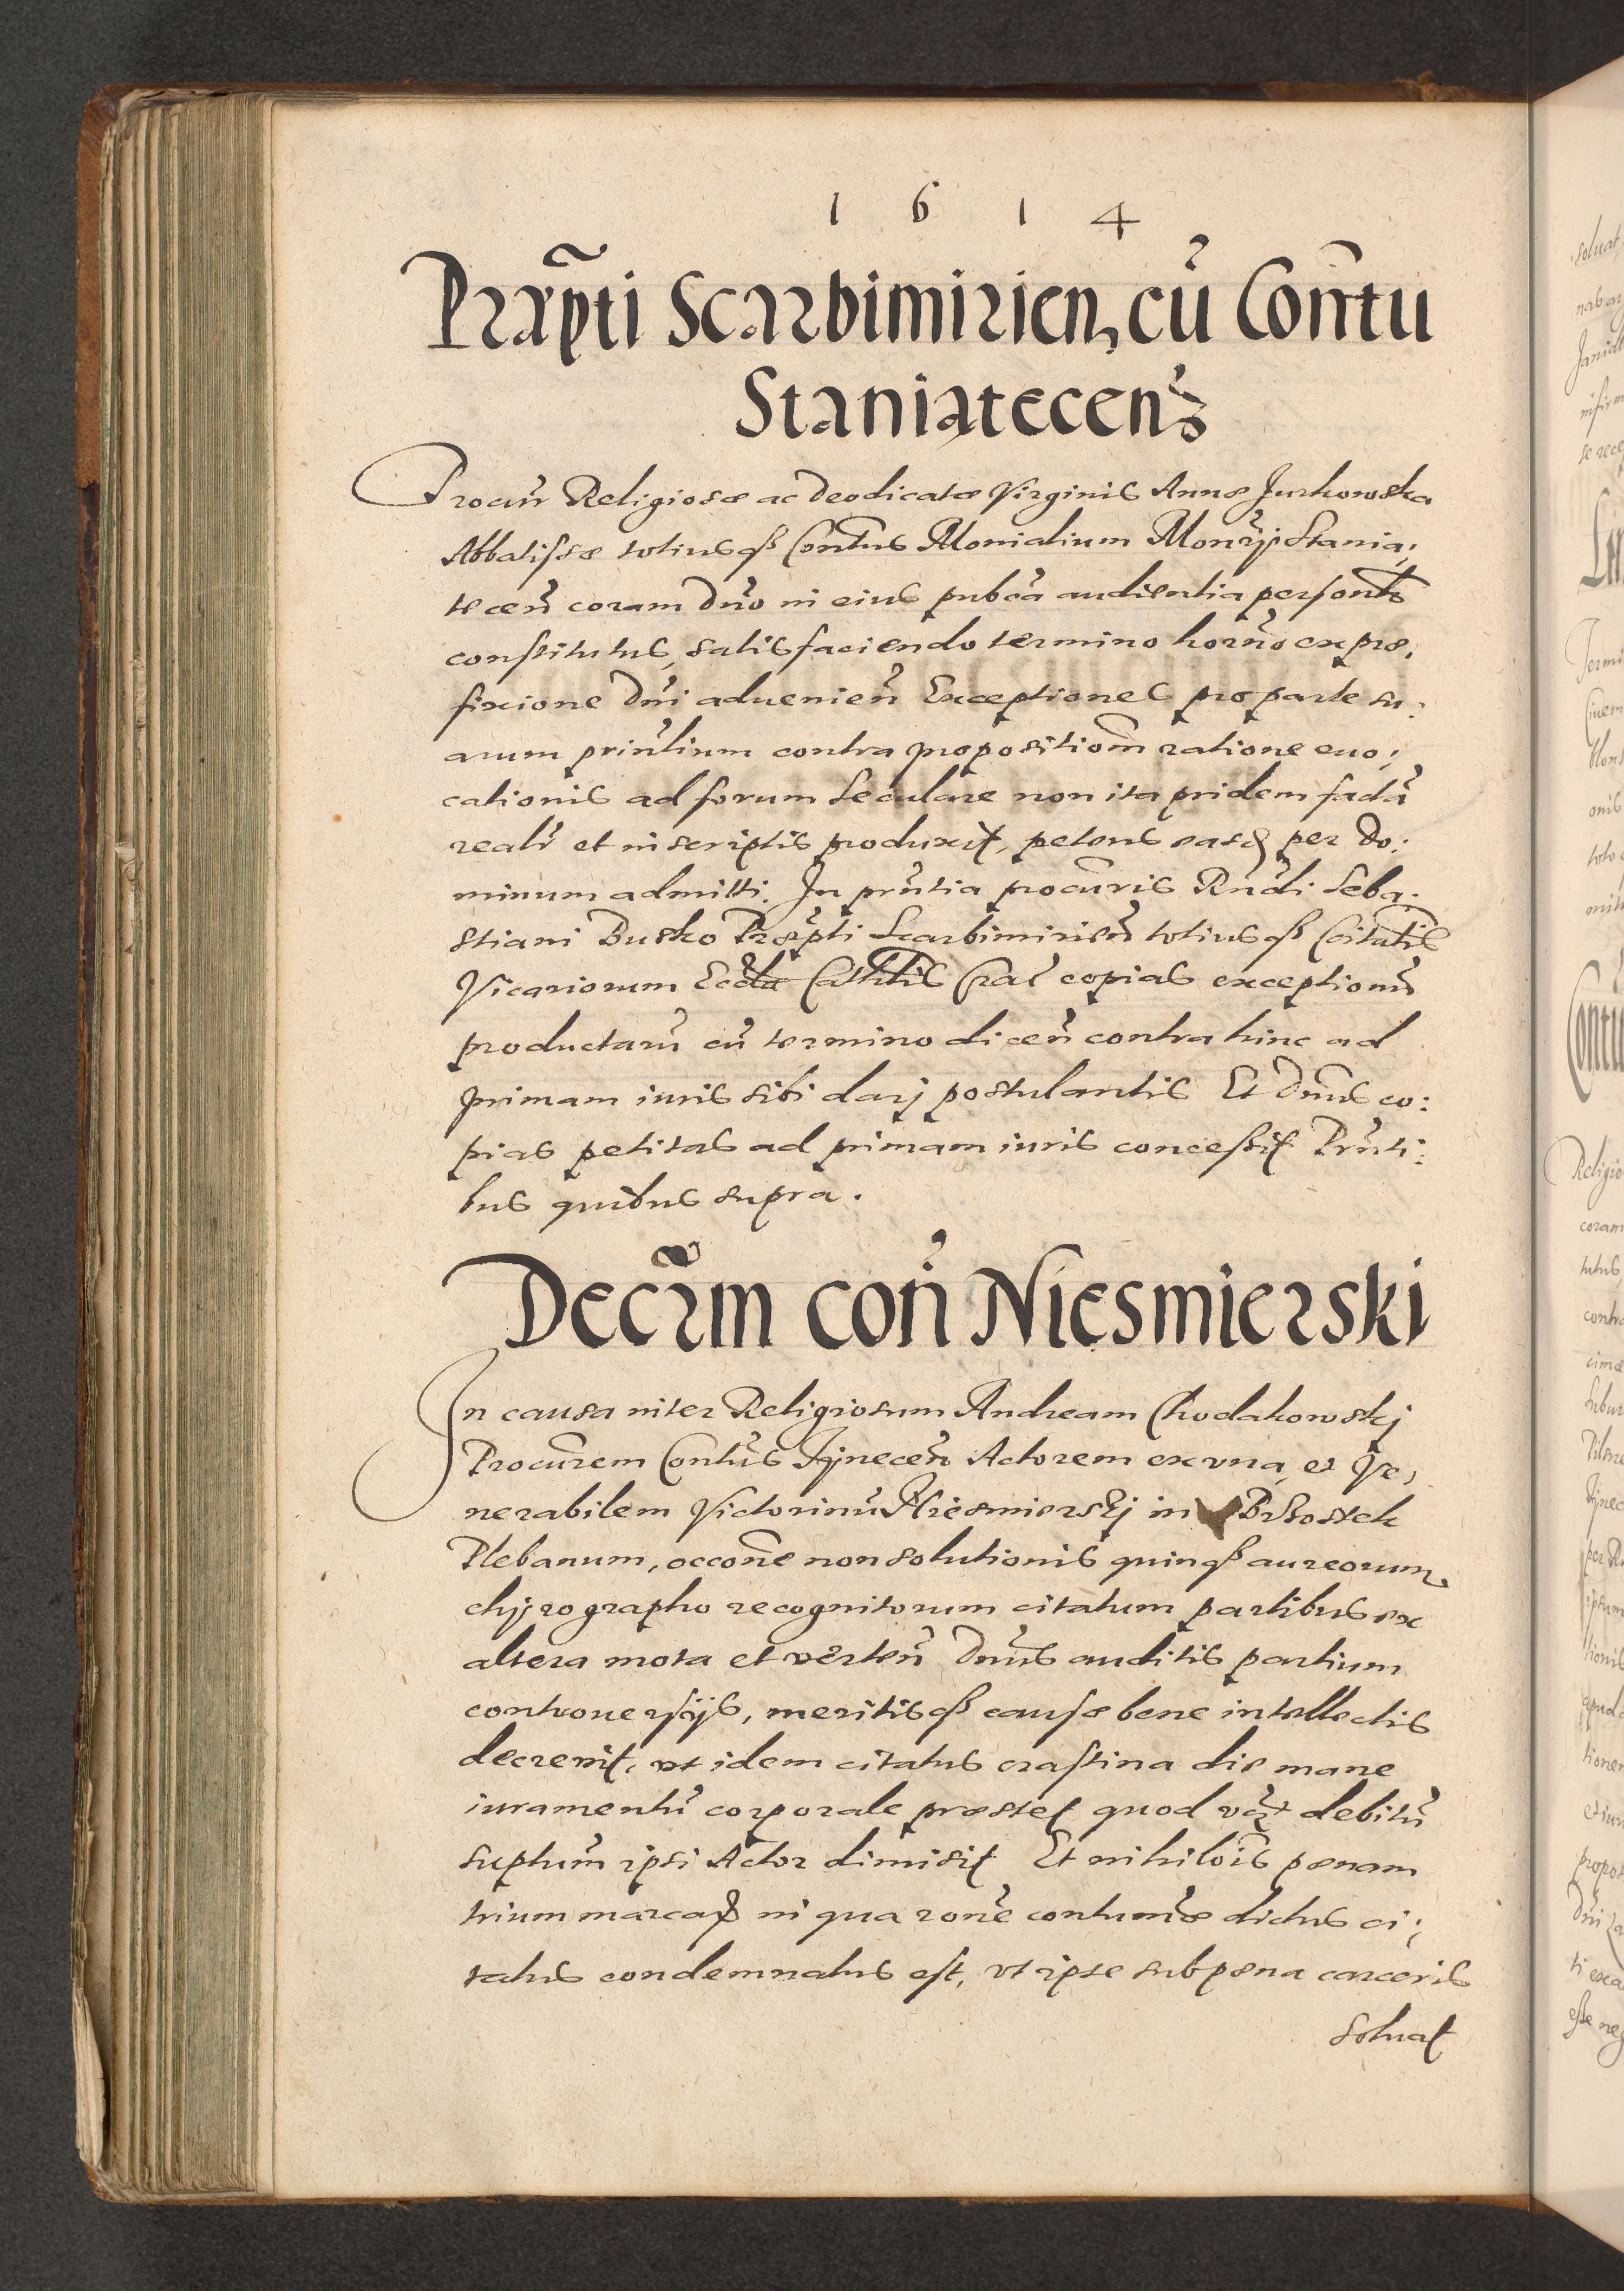 1 6 1 4
Præpti Scarbimirien, cū Contu
Staniątecen̄s
Procur̄ Religiosæ ac Deodicatæ Virginis Annæ Jurkowska
Abbatissæ totiusq3 Contus Monialium Monrÿ Stanią:
tecen̄ coram Dn̄o in eius pub̄ca audientia persontr
constitutus, satisfaciendo termino horn̄o ex præ:
fixione Dn̄i aduenien̄ Exceptiones pro parte su:
arum prin̄lium contra propositiom̄ ratione euo:
cationis ad forum seculare non ita pridem factā
realr̄ et in scriptis produxit, petens easd per Do:
minum admitti. In prn̄tia procuris Rn̄di Seba:
stiani Busko Præpti Scarbimirien̄ totiusq3 Coitatis
Vicariorum Ecclæ Cathlis Crac̄ copias exceptionū
productarū cū termino dicen̄ contra hinc ad
primam iuris sibi darj postulantis Et Dn̄us co:
pias petitas ad primam iuris concessit Prn̄ti:
bus quibus supra.
Decrm̄ con̄ Niesmierski
In causa inter Religiosum Andream Chodakowskj
Procurem̄ Contus Tÿnecen̄ Actorem ex vna, et Ve:
nerabilem Victorinū Niesmierskj in Brzostek
Plebanum, occone non solutionis quinq3 aureorum
chÿrographo recognitorum citatum partibus ex
altera mota et verten̄ Dn̄us auditis partium
controuersÿs, meritisq3 causæ bene intellectis
decreuit, vt idem citatus crastina die mane
iuramentū corporale præstet quod debitū
suptum̄ ipsi Actor dimisit Et nihilois pœnam
trium marcar̄ in qua rone contumæ dictus ci:
tatus condemnatus est, vt ipse sub pœna carceris
soluat